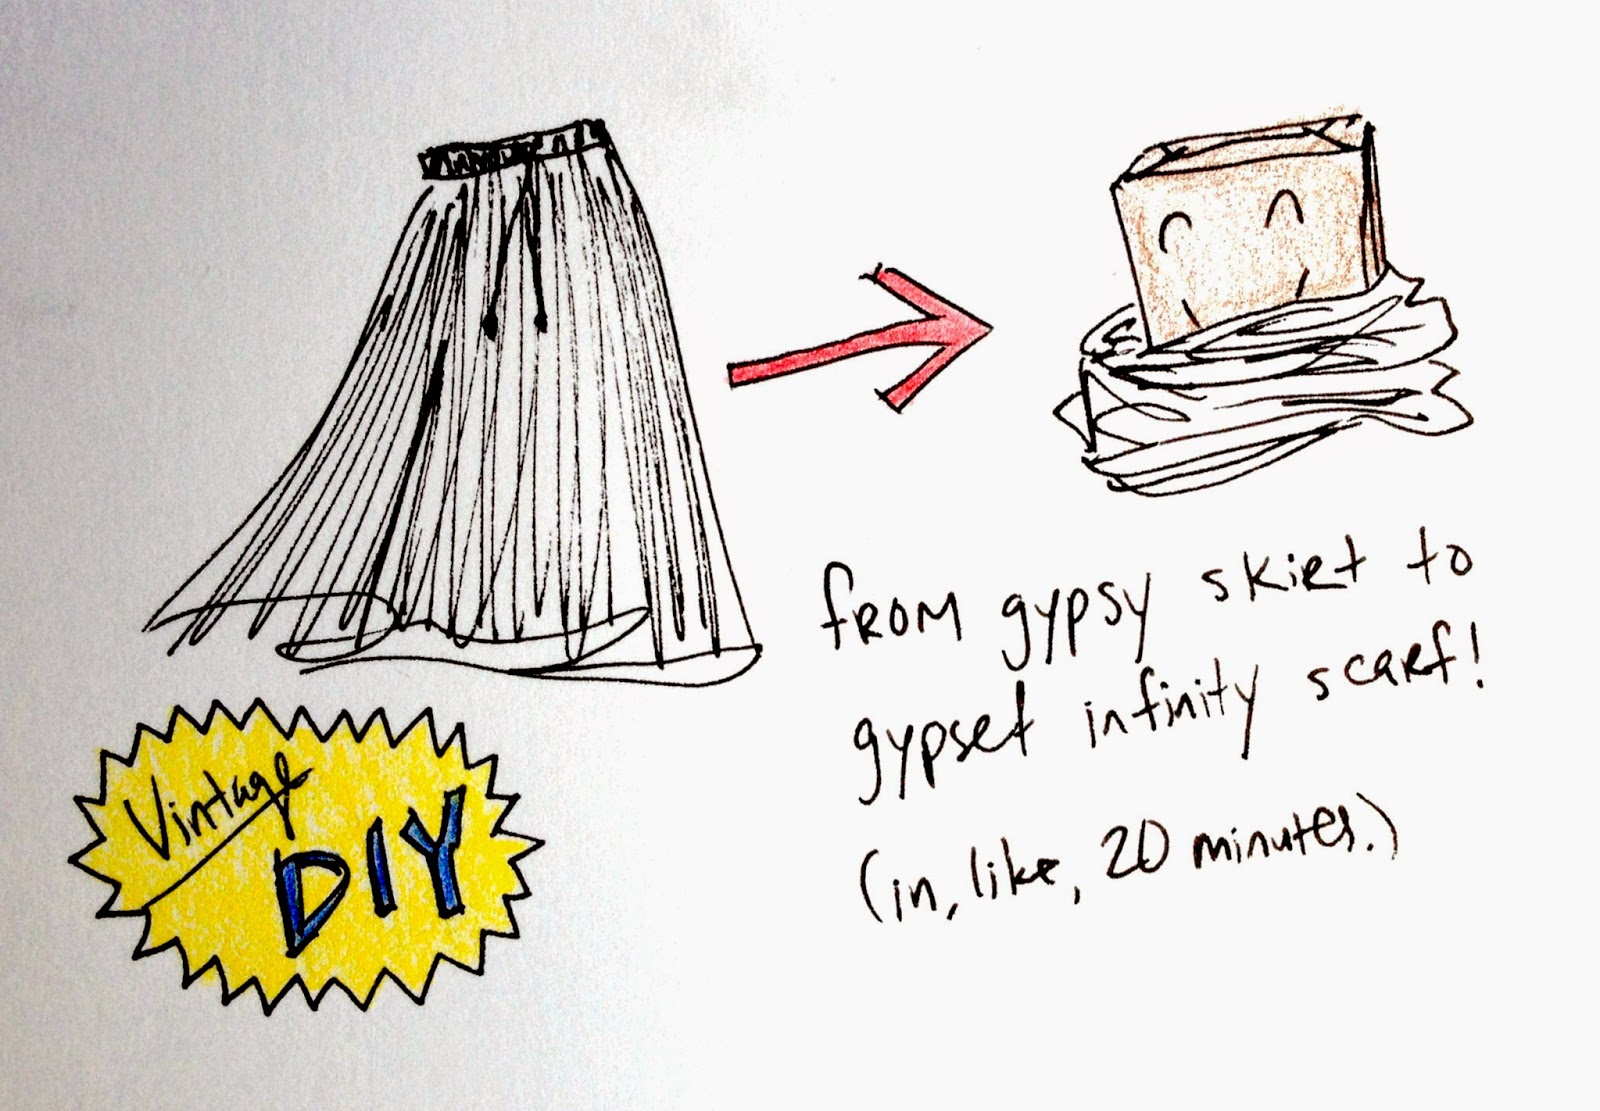 from gypsy skirt to
gypset infinity scarf!
(in, like, 20 minutes.)
Vintage
DIY